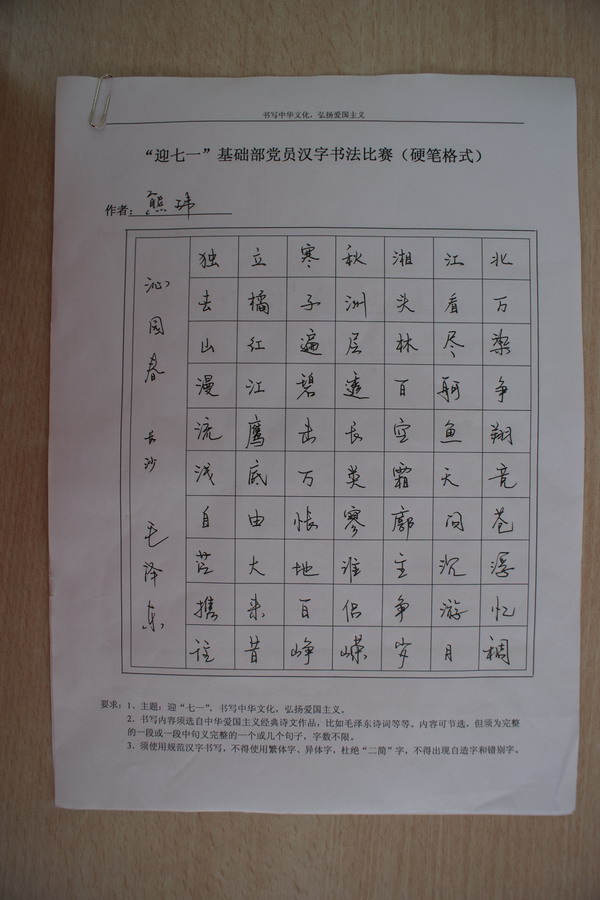 书写中华文化，弘扬爱国主义
“迎七一”基础部党员汉字书法比赛（硬笔格式）
作者：熊玮
沁园春 长沙 毛泽东
独立寒秋湘江北
去橘子洲头看万
山红遍层林尽染
漫江碧透百舸争
流鹰击长空鱼翔
浅底万英霜天竞
自由怅寥廓问苍
茫大地谁主沉浮
携来百侣争游忆
往昔峥嵘岁月稠
要求：1、主题：迎“七一”，书写中华文化，弘扬爱国主义。
2、书写内容须选自中华爱国主义经典诗文作品，比如毛泽东诗词等等。内容可节选，但须为完整
的一段或一段中句义完整的一个或几个句子，字数不限。
3、须使用规范汉字书写，不得使用繁体字、异体字，杜绝“二简”字，不得出现自造字和错别字。